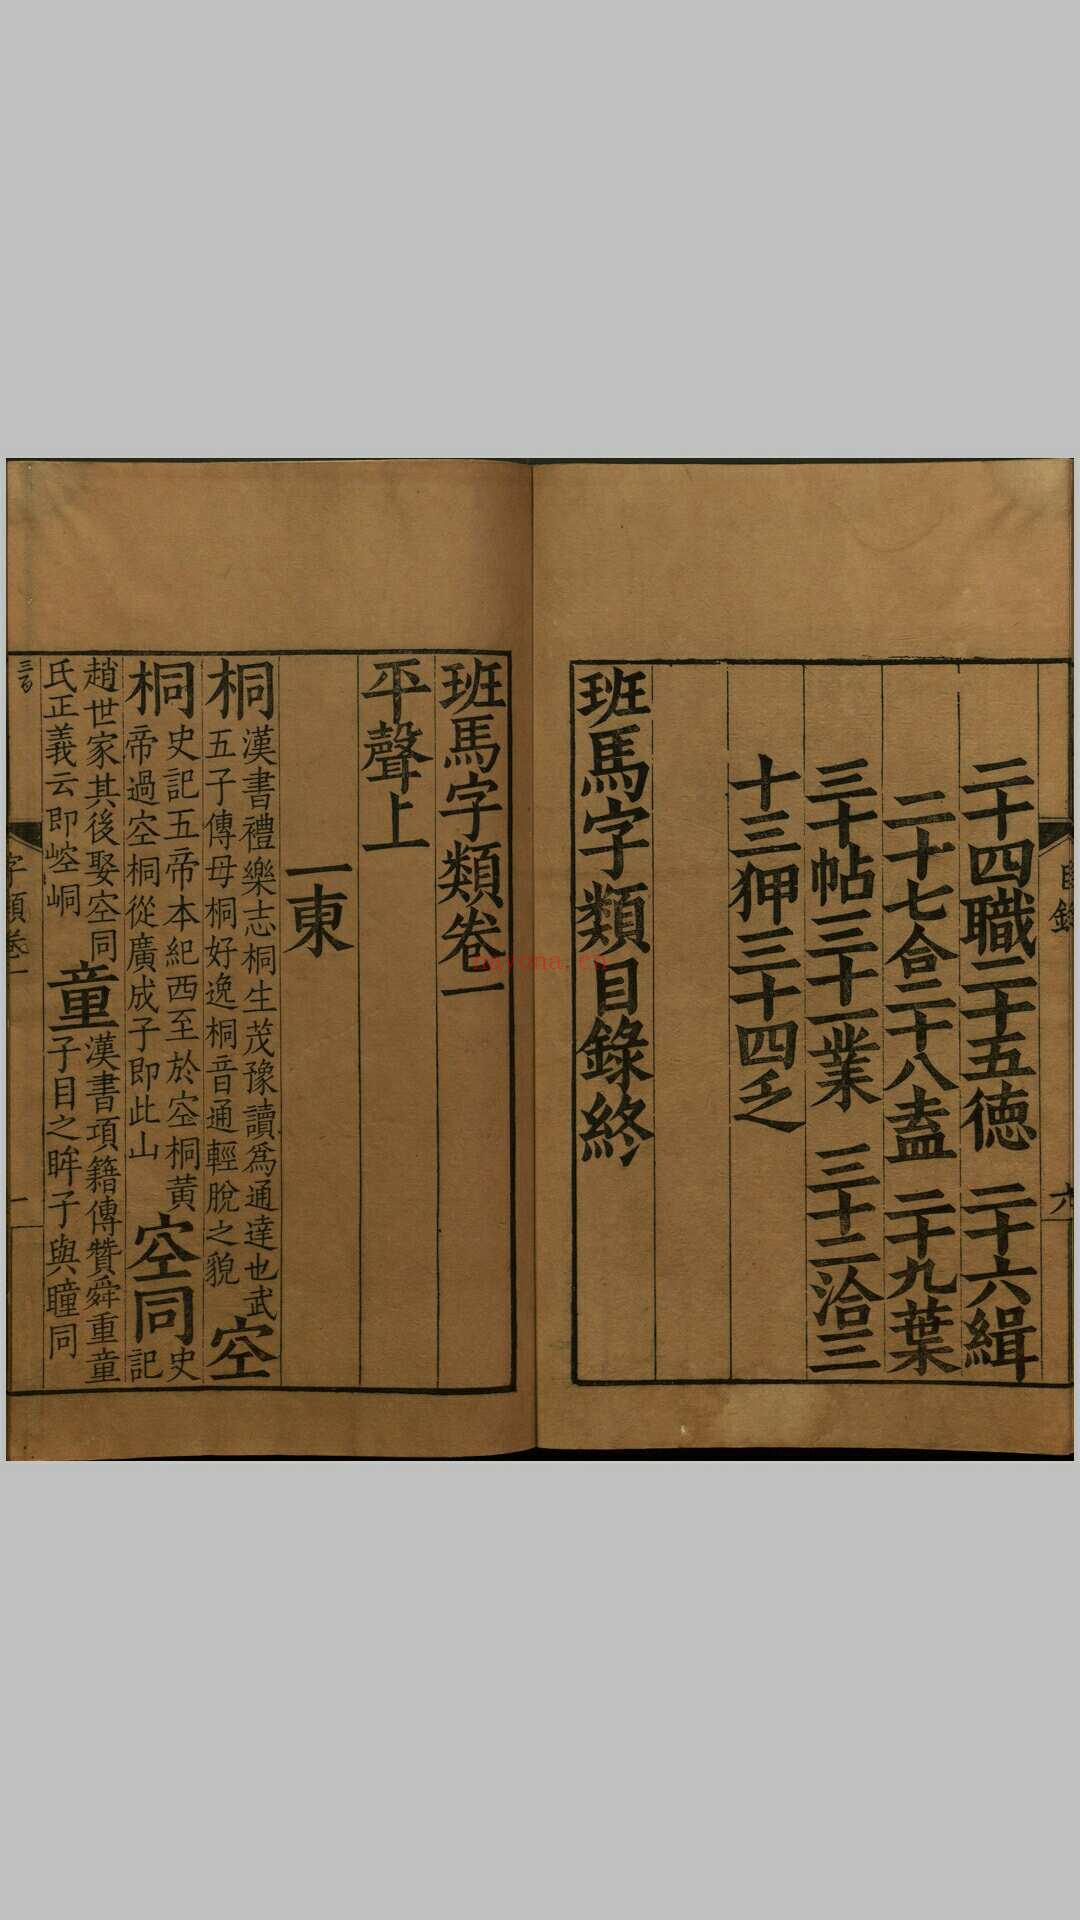 二十四職二十五德 二十六緝
二十七合二十八盍 二十九葉
三十帖三十一業 三十二洽三
十三狎三十四乏
班馬字類目錄終
班馬字類卷一
平聲上
一東
桐漢書禮樂志桐生茂豫讀爲通達也武
五子傳毋桐好逸桐音通輕脫之貌空
桐史記五帝本紀西至於空桐黃
帝過空桐從廣成子即此山空同史
記
趙世家其後娶空同
氏正義云即崆峒童漢書項籍傳贊舜重童
子目之眸子與瞳同
字類卷一
一
目錄
六